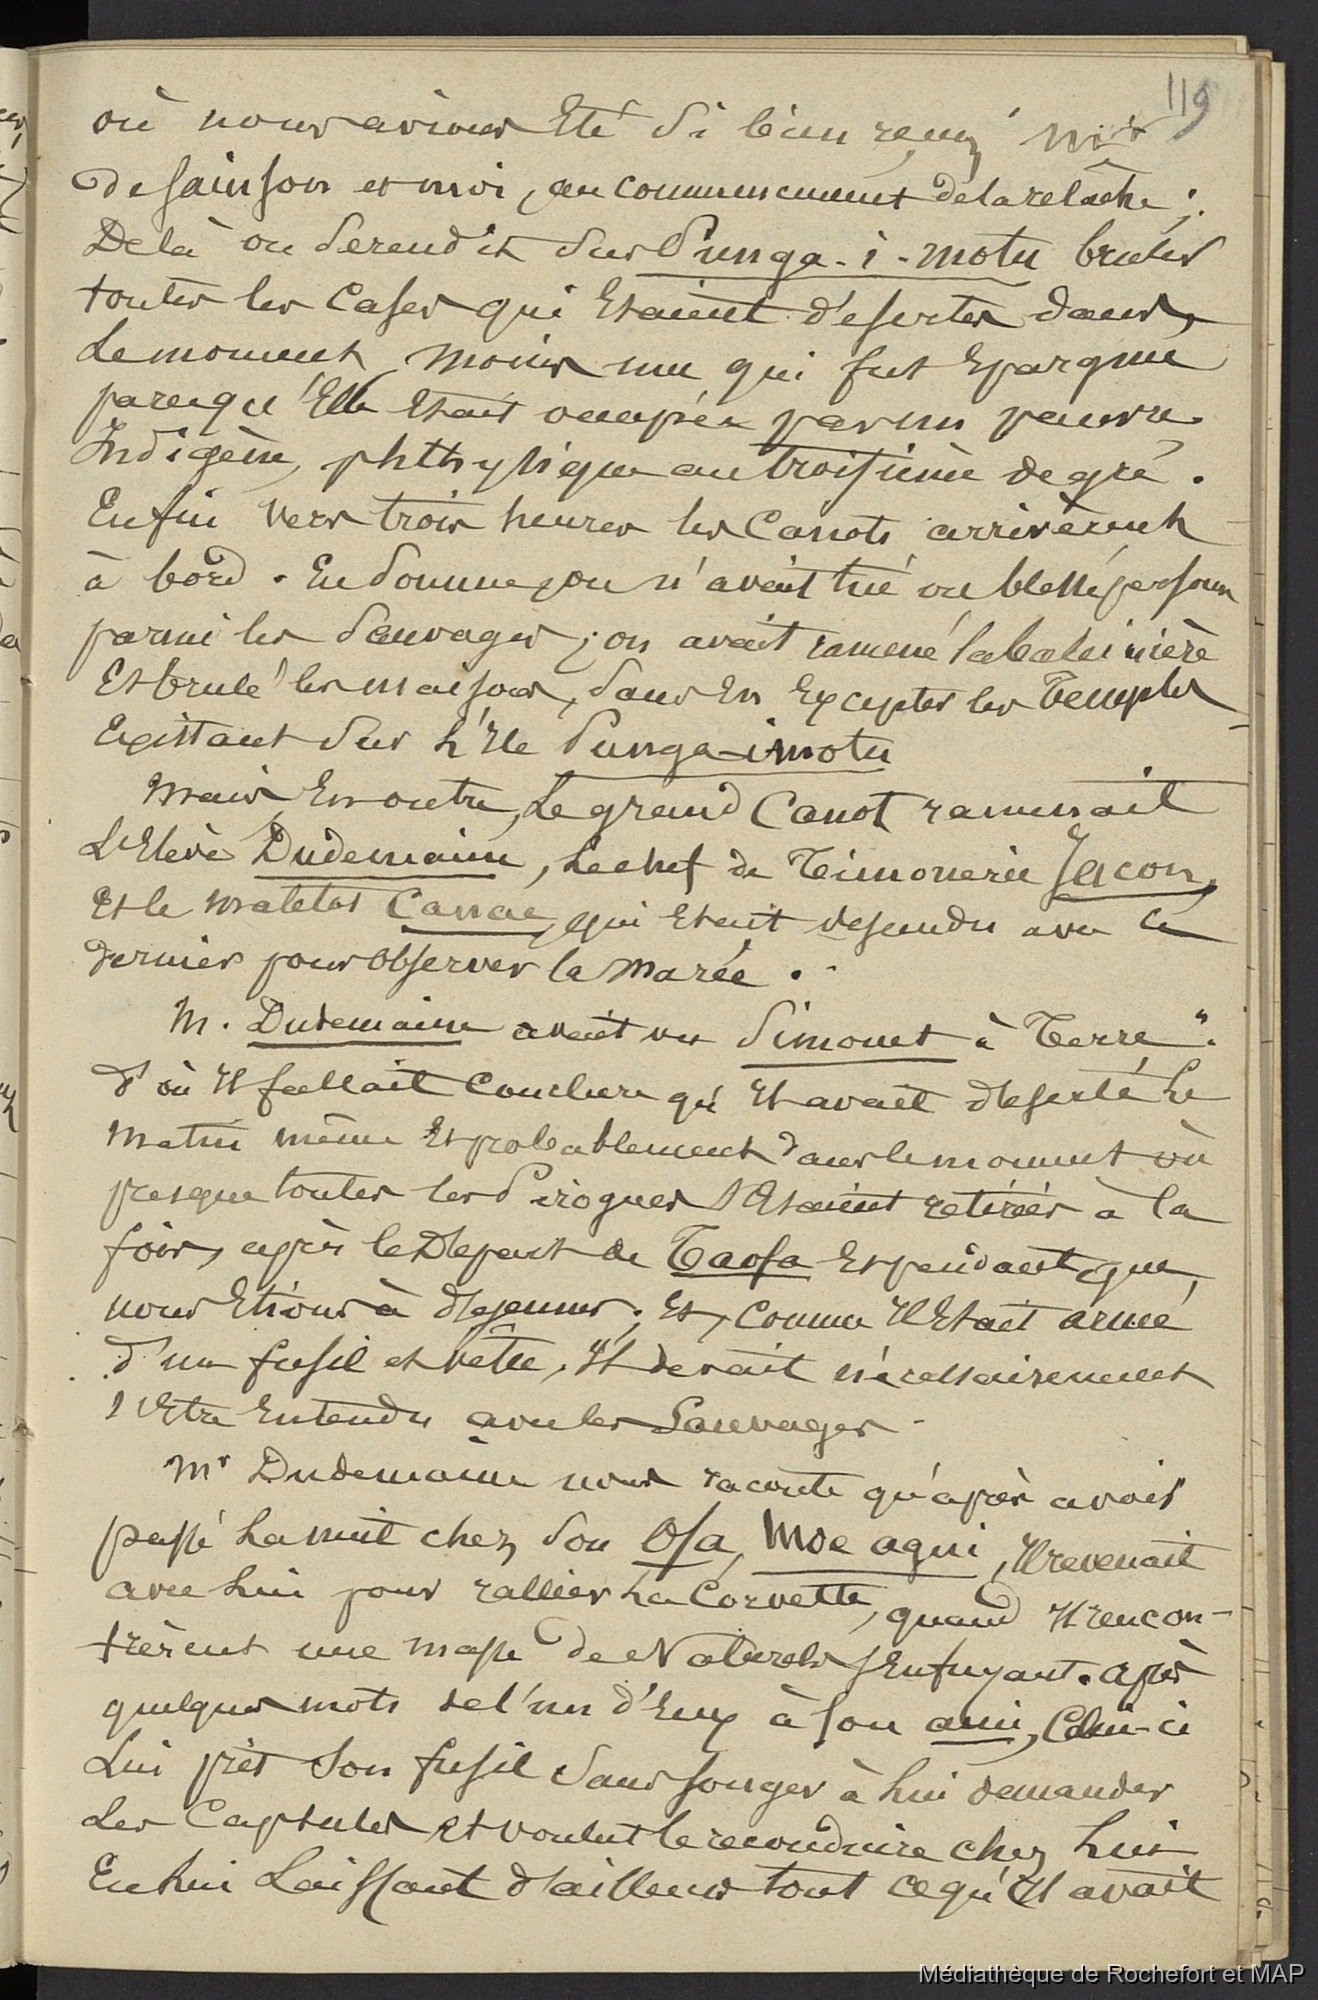 119
où nous avions Eté si bien reçus Mr
de Sainson et moi, au commencement de la relâche ;
De là on se rendit sur Punga-i-motu bruler
toutes les Cases qui Etaient désertes dans
Le moment, moins une qui fut Epargnée
parcequ'Elle Etait occupée par un pauvre
Indigène, phthysique au troisième degré.
Enfin vers trois heures les Canots arrivèrent
à bord. En somme, on n'avait tué ou blessé personne
parmi les Sauvages ; on avait ramené la baleinière
Et brulé les maisons, sans En Excepter les Temples
Existant sur L'Ile Punga-imotu
Mais En outre, Le grand Canot ramenait
L'Elève Dudemaine, Le chef de Timonerie Jacon,
Et le matelot Cannac, qui Etait descendu avec ce
dernier pour observer la Marée.
M. Dudemaine avait vu Simonet à Terre".
d'où Il fallait Conclure qu'Il avait déserté Le
matin même Et probablement dans le moment où
presque toutes les Pirogues s'Etaient retirées à la
fois, après le Départ de Taofa Et pendant que
nous Etions à déjeuner ; Et, Comme Il Etait armé
d'un fusil et vêtu, Il devait nécessairement
s'Etre Entendu avec les Sauvages.
Mr Dudemaine nous raconte qu'après avoir
passé La nuit chez son Ofa, Moe agui, Il revenait
avec Lui pour rallier La Corvette, quand Il rencon-
trèrent une masse de Naturels s'Enfuyant. après
quelques mots de l'un d'Eux à son ami, Celui-ci
Lui prit Son fusil sans songer à Lui demander
Les Capsules et voulut le reconduire chez Lui
En Lui Laissant d'ailleurs tout ce qu'Il avait
Médiathèque de Rochefort et MAP